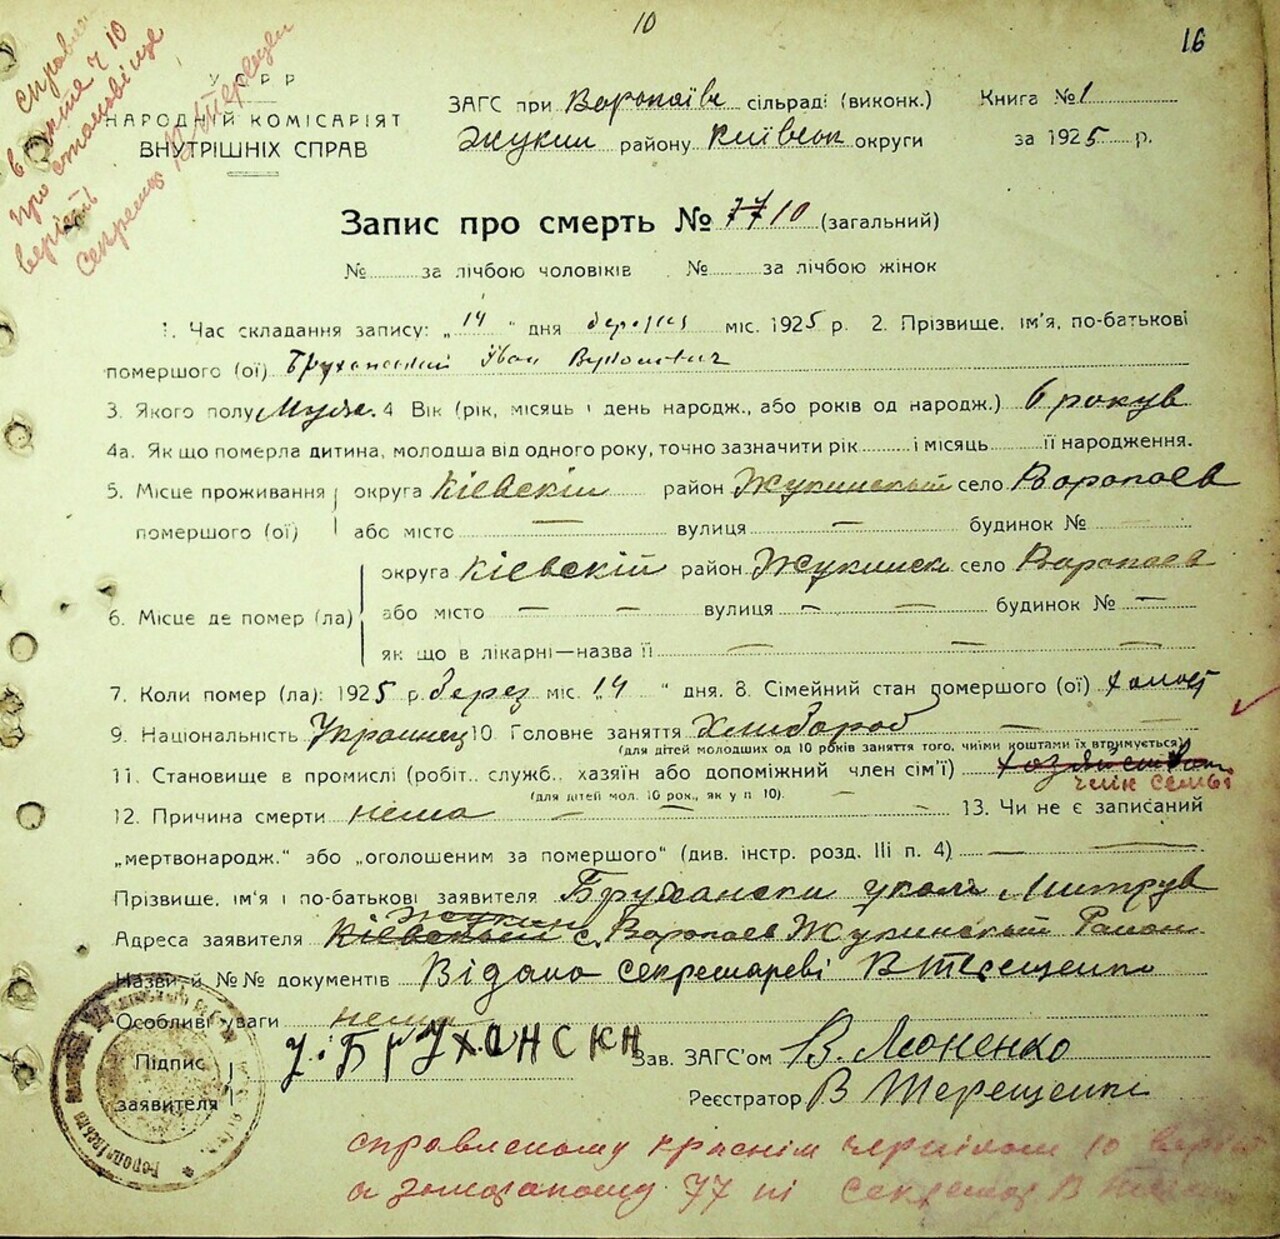 10
16
справлено
в пункте ч 10
про становіще
верість
секретар В Терещен
УСРР
НАРОДНІЙ КОМІСАРІЯТ
ВНУТРІШНІХ СПРАВ
ЗАГС при Воропаївс сільраді (виконк.) Книга № 1
Жукин району Київськ округи за 1925 р.
Запис про смерть № 77 10 (загальний)
№ за лічбою чоловіків № за лічбою жінок
1. Час складання запису: „14“ дня березня міс. 1925 р. 2. Прізвище, ім'я, по-батькові
помершого (ої) Бруханський Іван
3. Якого полу Мужс. 4 Вік (рік, місяць і день народж., або років од народж.) 6 рокув
4а. Як що померла дитина, молодша від одного року, точно зазначити рік і місяць її народження.
5. Місце проживання округа Кіевскій район Жукинскый село Воропаев
помершого (ої) або місто — вулиця — будинок №
округа Кіевскій район Жукинск село Воропаев
6. Місце де помер (ла) або місто — — вулиця — — будинок № —
як що в лікарні—назва її — — —
7. Коли помер (ла): 1925 р. берез міс. 14 “ дня. 8. Сімейний стан помершого (ої) холост
9. Національність Украинец 10. Головне заняття Хлибороб —
(для дітей молодших од 10 років заняття того, чиїми коштами їх втримується)
11. Становище в промислі (робіт., служб., хазяїн або допоміжний член сім'ї)
член семьї
(для дітей мол. 10 рок., як у п 10). —
12. Причина смерти нема — — — 13. Чи не є записаний
„мертвонародж.“ або „оголошеним за помершого“ (див. інстр. розд. III п. 4) — —
Прізвище, ім'я і по-батькові заявителя Брухански Митрув
Жукин
Адреса заявителя Кіевскый с. Воропаев Жукинскый Район
Назви й №№ документів Відано секретареві В Терещенко
Особливі уваги нема
Підпис У. Брухански Зав. ЗАГС'ом В. Моненко
заявителя Реєстратор В Терещенко
справленому краснім чернілом 10 верість
а 77 ні секретар В